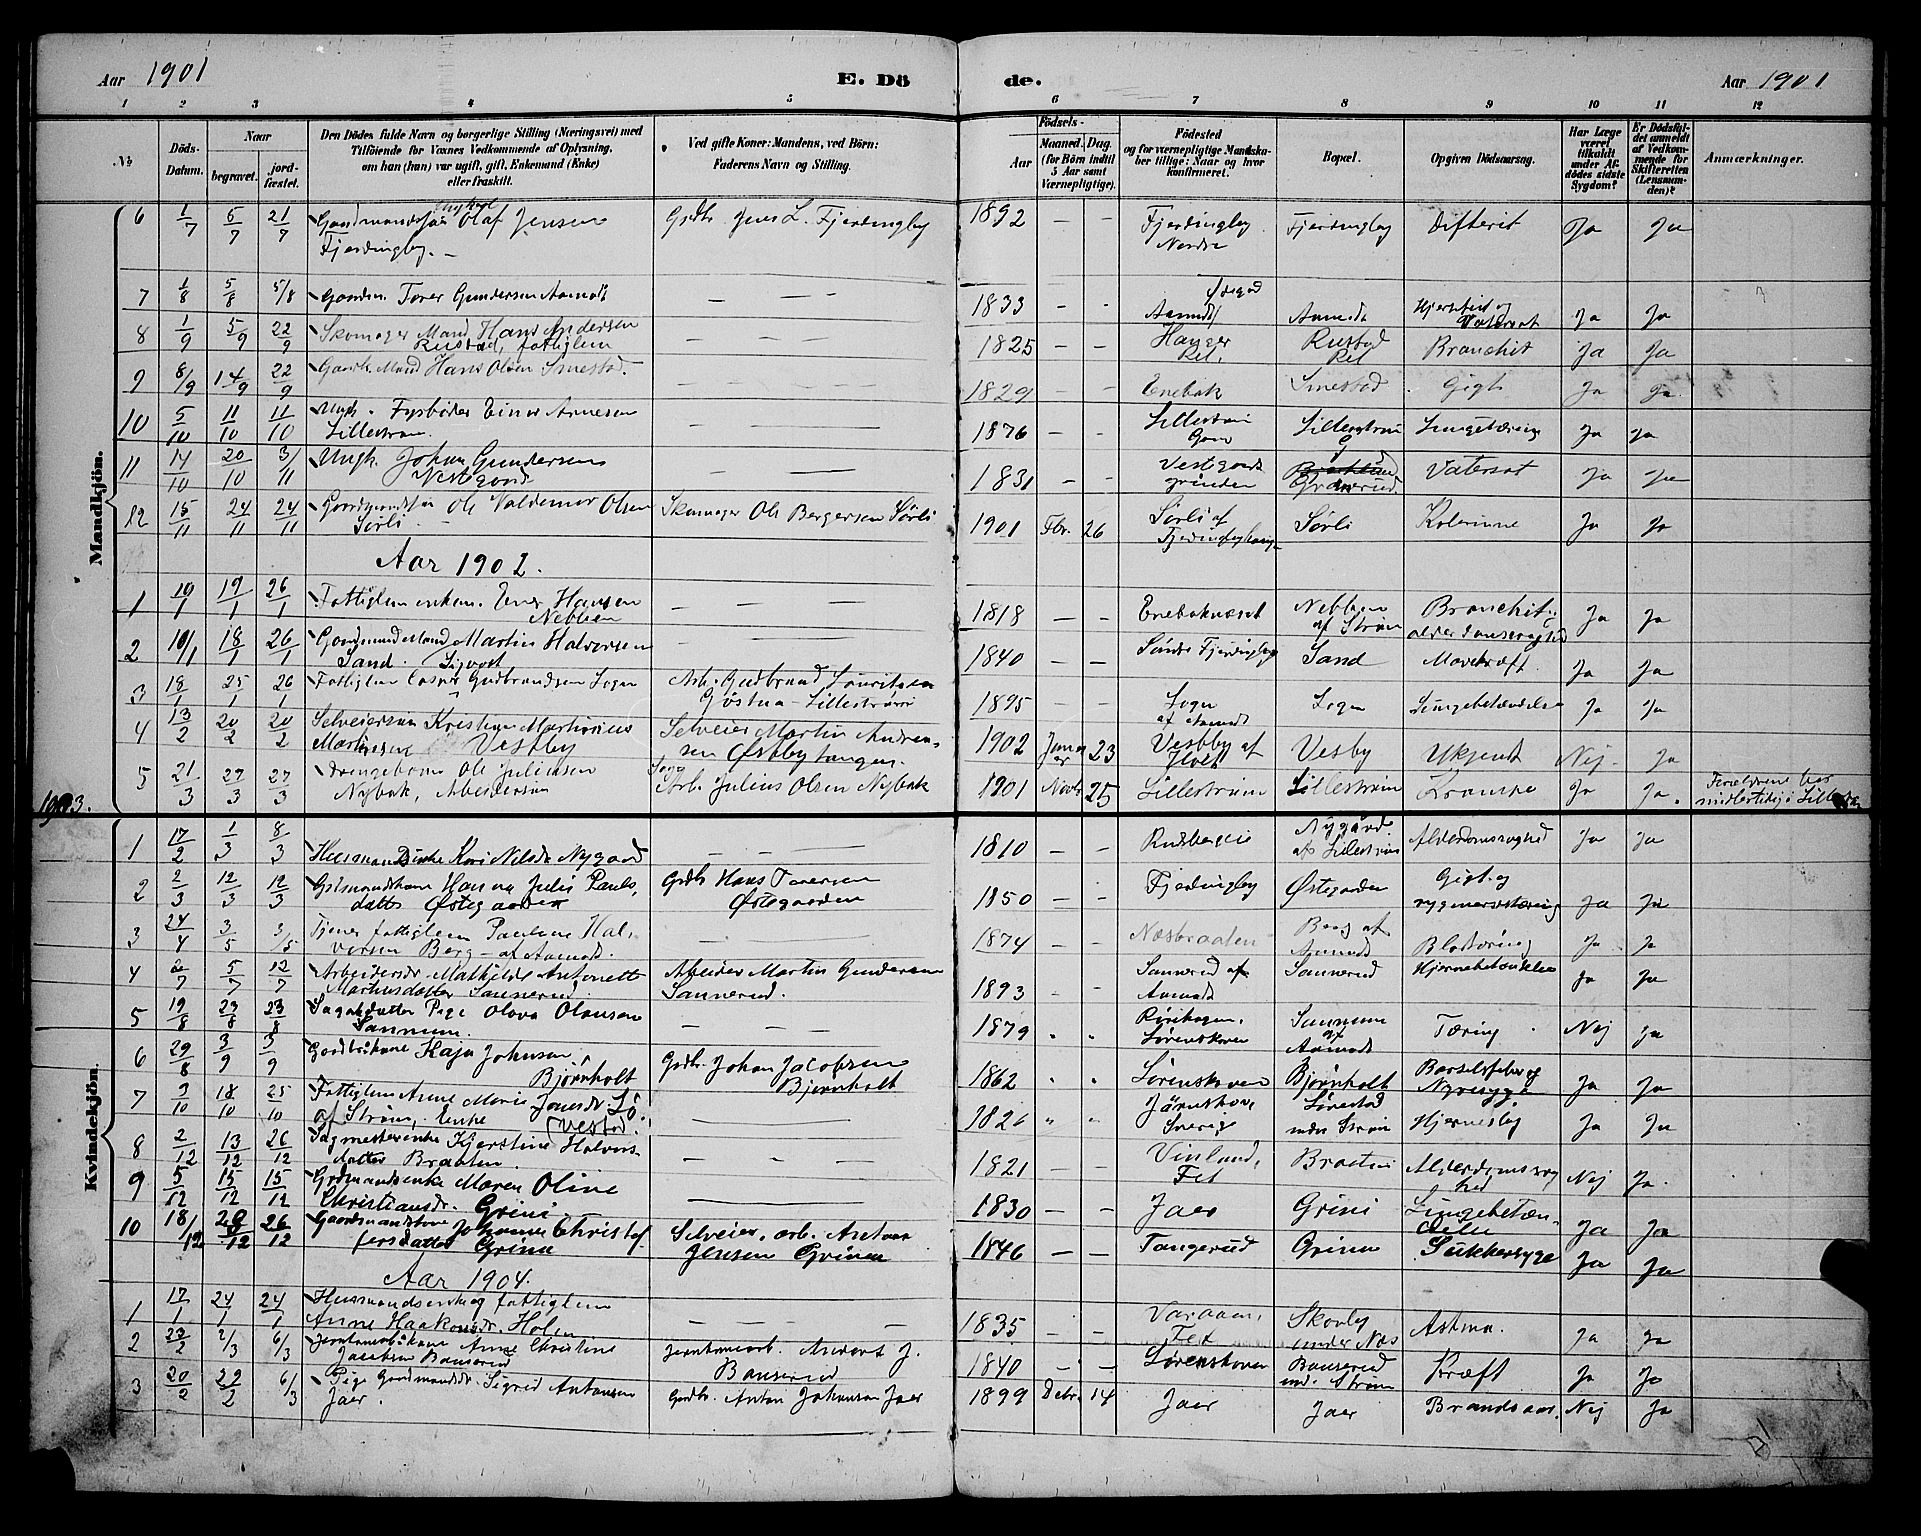 Aar 1901 E. Dö de. Aar 1901
1 2 3 4 5 6 7 8 9 10 11 12
No
Döds-Datum.
Naar
begravet.
jord-fæstet.
Den Dödes fulde Navn og borgerlige Stilling (Næringsvei) med
Tilföiende for Voxnes Vedkommende af Oplysning,
om han (hun) var ugift, gift, Enkemand (Enke)
eller fraskilt.
Ved gifte Koner: Mandens, ved Börn:
Faderens Navn og Stilling.
Födsels-
Aar
Maaned. Dag.
(for Börn indtil
5 Aar samt
Værnepligtige).
Födested
og for værnepligtige Mandska-
ber tillige: Naar og hvor
konfirmeret.
Bopæl.
Opgiven Dödsaarsag.
Har Læge
været
tilkaldt
under Af-
dödes sidste
Sygdom?
Er Dödsfal-
det anmeldt
af Vedkom-
mende for
Skifteretten
(Lensman-
den)?
Anmærkninger.
Mandkjön.
6 1/7 5/7 21/7 Olaf Jensen Grdbr. Jens L. Fjerdingby 1892 – – Fjerdingby Fjerdingby Difterit Ja Ja
Fjerdingby. – Nordre
7 1/8 5/8 5/8 Gaardm. Torer Gundersen Aamodt – – – 1833 – – Aamodt Aamodt Hjertefeil og Vatersot Ja Ja
8 1/9 5/9 22/9 Skomager Mand Hans Andersen – – – 1825 – – Hauger Rustad Bronchit Ja Ja
Rustad, fattiglem
9 8/9 14/9 22/9 Gaardb. Mand Hans Olsen Smestad. – – – 1829 – – Enebak Smestad Gigt Ja Ja
10 5/10 11/10 11/10 Ungk. Fyrböder Einar Arnesen – – – 1876 – – Lillestrøm Lillestrøm Lungetæring Ja Ja
Lillestrøm.
11 14/10 20/10 3/11 Ungk. Johan Gundersen – – – 1831 – – Vestgaard Vatersot Ja Ja
Vestgaard grinden
12 15/11 24/11 24/11 Ole Valdemar Olsen Skomager Ole Bergersen Sørli 1901 Fbr. 26 Sørli af Sørli Kolerine Ja Ja
Sørli –
Aar 1902.
1 10/1 19/1 26/1 Fattiglem enkem. Hansen – – – 1818 – – Nebben Bronchit Ja Ja
Nebben af Strøm
2 10/1 18/1 26/1 Gaardmand Mand Martin Halvorsen – – – 1840 – – Søndre Fjerdingby Sand Mavekræft Ja Ja
Sand.
3 18/1 25/1 26/1 Fattiglem Casper Gudbrandsen Sogn Arb. Gudbrand Lauritsen 1895 – – Sogn Sogn Lungebetændelse Ja Ja
Lillestrøm af Aamodt
4 13/2 20/2 20/2 Selveiersøn Kristian Martinius Selveier Martin Andrea- 1902 Januar 23 Vestby af Vesby Ukjendt Nej Ja
Vestby sen Østbytangen.
5 21/3 27/3 27/3 Drengebarn Ole Juliussen Arb. Julius Olsen Nybak 1901 Novbr 25 Lillestrøm Lillestrøm Krampe Ja Ja. Forældrene bor
Nybak, Arbeidersøn midlertidig i Lillestrøm
1903.
Kvindekjön.
1 17/2 1/3 8/3 Husmandsenke Kari Nilsdr Nygaard – – – 1810 – – Nygård Alderdomssvaghed Ja Ja
af Lillestrøm
2 2/3 12/3 12/3 Grdmandskone Hanna Julie Pauls- Grdbr. Hans Torersen 1850 – – Fjerdingby Østegaarden Gigt og Ja Ja
datter Østegaarden Østegaarden rygmarvstæring
3 24/4 3/5 3/5 Tjener fattiglem Pauline Hal- – – – 1874 – – Næsbraaten Berg af Blodtæring Ja Ja
vorsen Berg – af Aamodt Aamodt
4 2/7 5/7 12/7 Arbeiderdr. Mathilde Antonette Arbeider Martin Gundersen 1893 – – Sannerud af Sannerud Hjernebetændelse Ja Ja
Martinsdatter Sannerud. Sannerud. Aamodt
5 19/8 23/8 23/8 Pige Olava Olausen – – – 1879 " " Sannum Tæring Nej Ja
Sannum. Sørenskoven af Aamodt
6 29/8 3/9 3/9 Gaardbr.kone Kaja Johnsen Grdbr. Johan Jacobsen 1862 " " Sørenskoven Bjørnholt Barselfeber og Ja Ja
Bjørnholt Bjørnholt Nyresyge
7 3/10 18/10 25/10 Fattiglem Anne Marie Jonsdr. Lö- – – 1826 " " Jarnskov, Løvestad Hjerneslag Ja Ja
af Strøm, Enke (vestad. Sverige under Strøm
8 2/12 13/12 26/12 Sagmesterenke Kjerstine Halvors- – – – 1821 – – Vinlund, Braaten Alderdomssvag Nej Ja.
datter Braaten. Fet hed
9 5/12 15/12 15/12 Grdmandsenke Maren Oline – – 1830 – – Jaer Grini Lungebetæn- Ja Ja
Christiansdr. Grini delse
10 18/12 26/12 26/12 Gaardmandskone Johanne Christof- Selveier, arb. Anton 1846 – – Tangerud Grina Sukkersyge Ja Ja
fersdatter Grina Jensen Grina
Aar 1904.
1 17/1 24/1 24/1 Husmandsenke og fattiglem – – – 1835 – – Varaaen, Skovby Astma. Ja Ja
Anne Haakonsdr. Holen Fet under Næs
2 23/2 2/3 6/3 Anne Christine Anders J. 1840 – – Sørenskoven Bauserud Kræft Ja Ja
Jacobsen Bauserud Bauserud und. Strøm
3 20/2 29/2 6/3 Pige Gaardmandsdr. Sigrid Antonsen Gaardbr. Anton Johansen Jaer 1899 Debr. 14 Jaer Jaer Brandsaar. Nej Ja
Jaer.